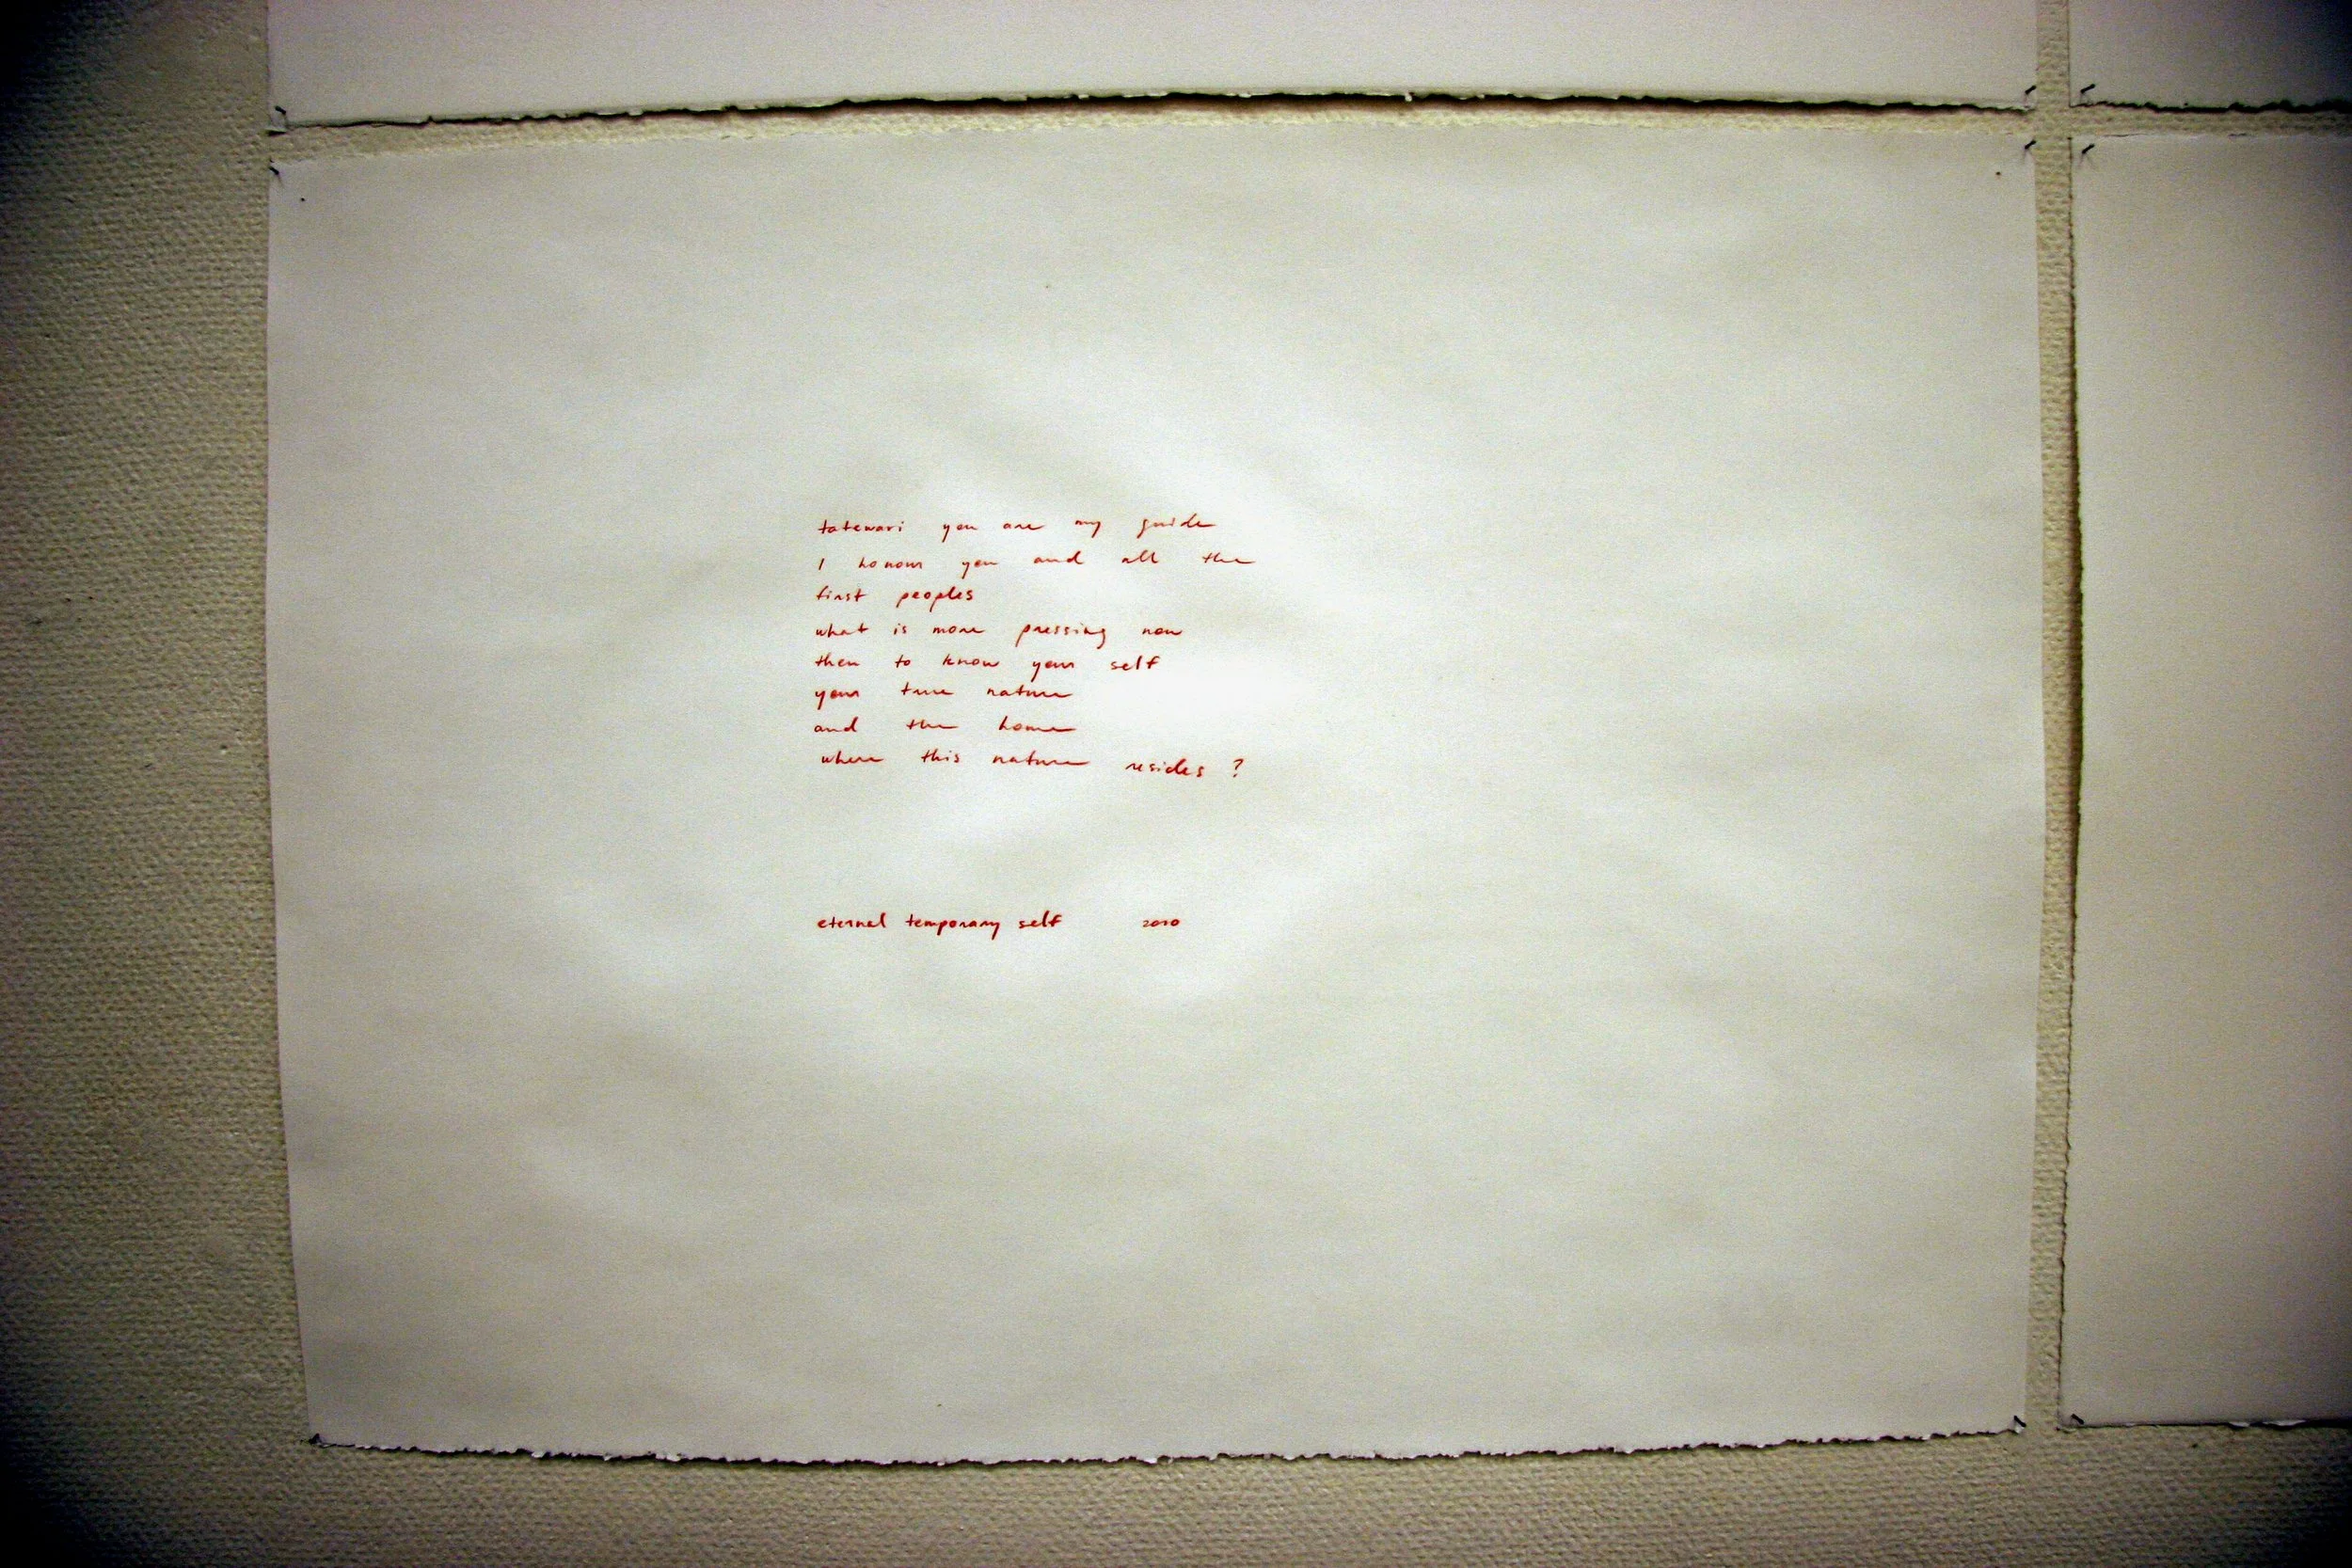 tatewari you are my guide
I honour you and all the
first peoples
what is more pressing now
then to know your self
your true nature
and the home
where this nature resides ?
eternal temporary self 2010